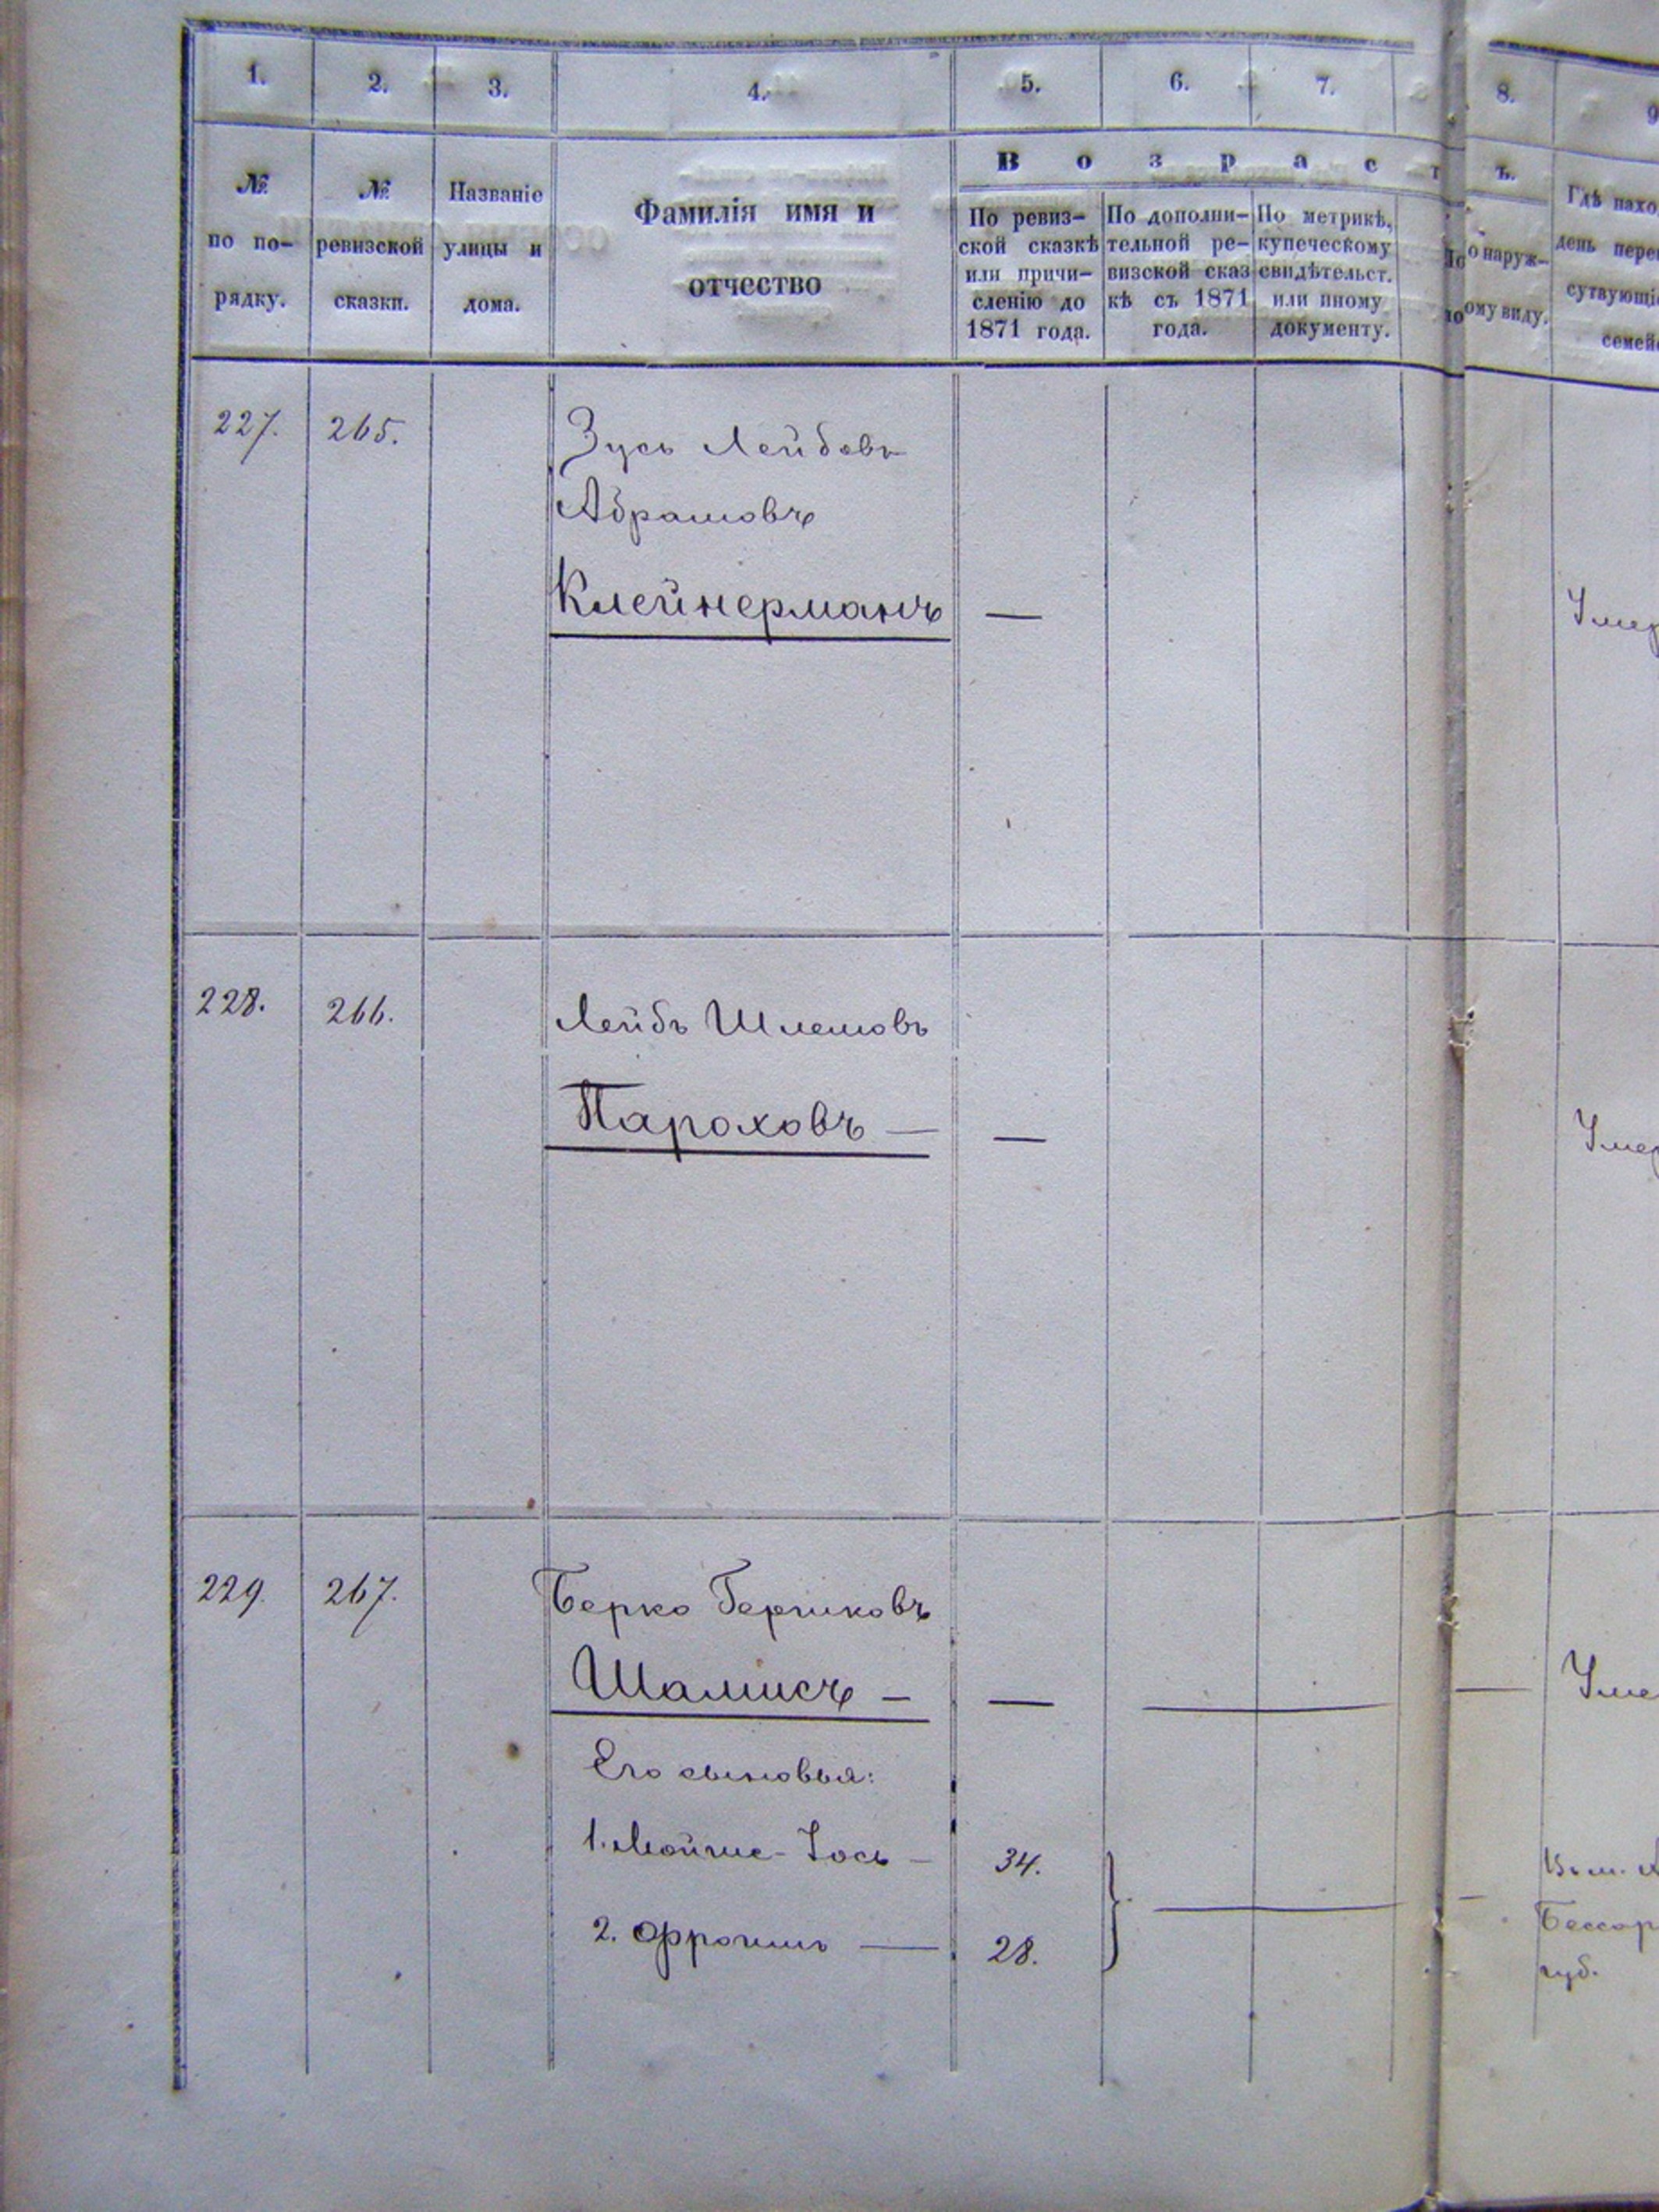 1. 2. 3. 4. 5. 6. 7. 8. 9
В о з р а с т ъ.
№ по по-
рядку.
№ ревизской
сказки.
Названіе
улицы и
дома.
Фамилія имя и
отчество
По ревиз-
ской сказкѣ
или причи-
сленію до
1871 года.
По дополни-
тельной ре-
визской сказ
кѣ съ 1871
года.
По метрикѣ,
купеческому
свидѣтельст.
или иному
документу.
По наруж-
ному виду.
Гдѣ нахо
день пере
сутвующі
семей
227. 265. Зусь Лейбовъ
Абрамовъ
Клейнерманъ — Умер
228. 266. Лейбъ Шлемовъ
Пароховъ — — Умер
229. 267. Берко Гершковъ
Шамисъ — — — — Уме
Его сыновья:
1. Мойше-Іось — 34.
2. Фроимъ — 28. — —
Бессар
губ.